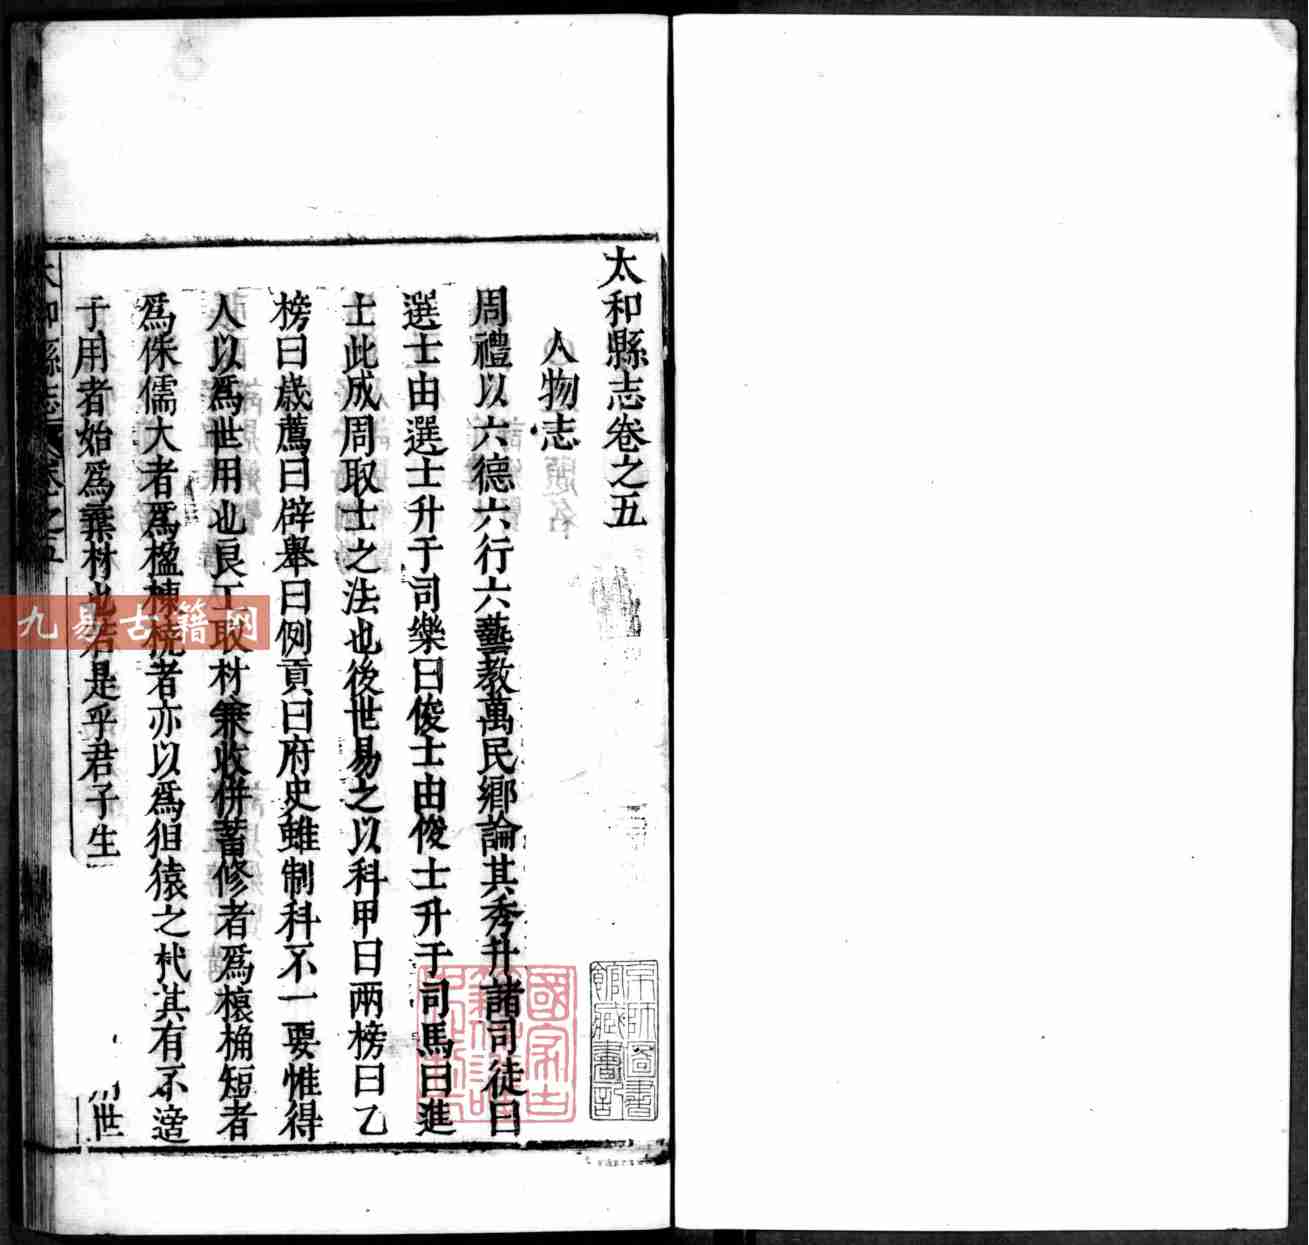 太和縣志卷之五
人物志
周禮以六德六行六藝教萬民鄉論其秀升諸司徒曰
選士由選士升于司樂曰俊士由俊士升于司馬曰進
士此成周取士之法也後世易之以科甲曰兩榜曰乙
榜曰歲薦曰辟舉曰例貢曰府史雖制科不一要惟得
人以爲世用也良工取材兼收併蓄修者爲榱桷短者
爲侏儒大者爲楹棟橈者亦以爲狙猿之杙其有不適
于用者始爲棄材也若是乎君子生 世
太和縣志 卷之五
國家古籍
京師圖書館藏書記
九易古籍网